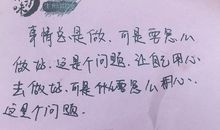 事情总是做、可是要怎么
做好、这是个问题、让自己用心
去做、可是什么要怎么用心、
这是个问题.